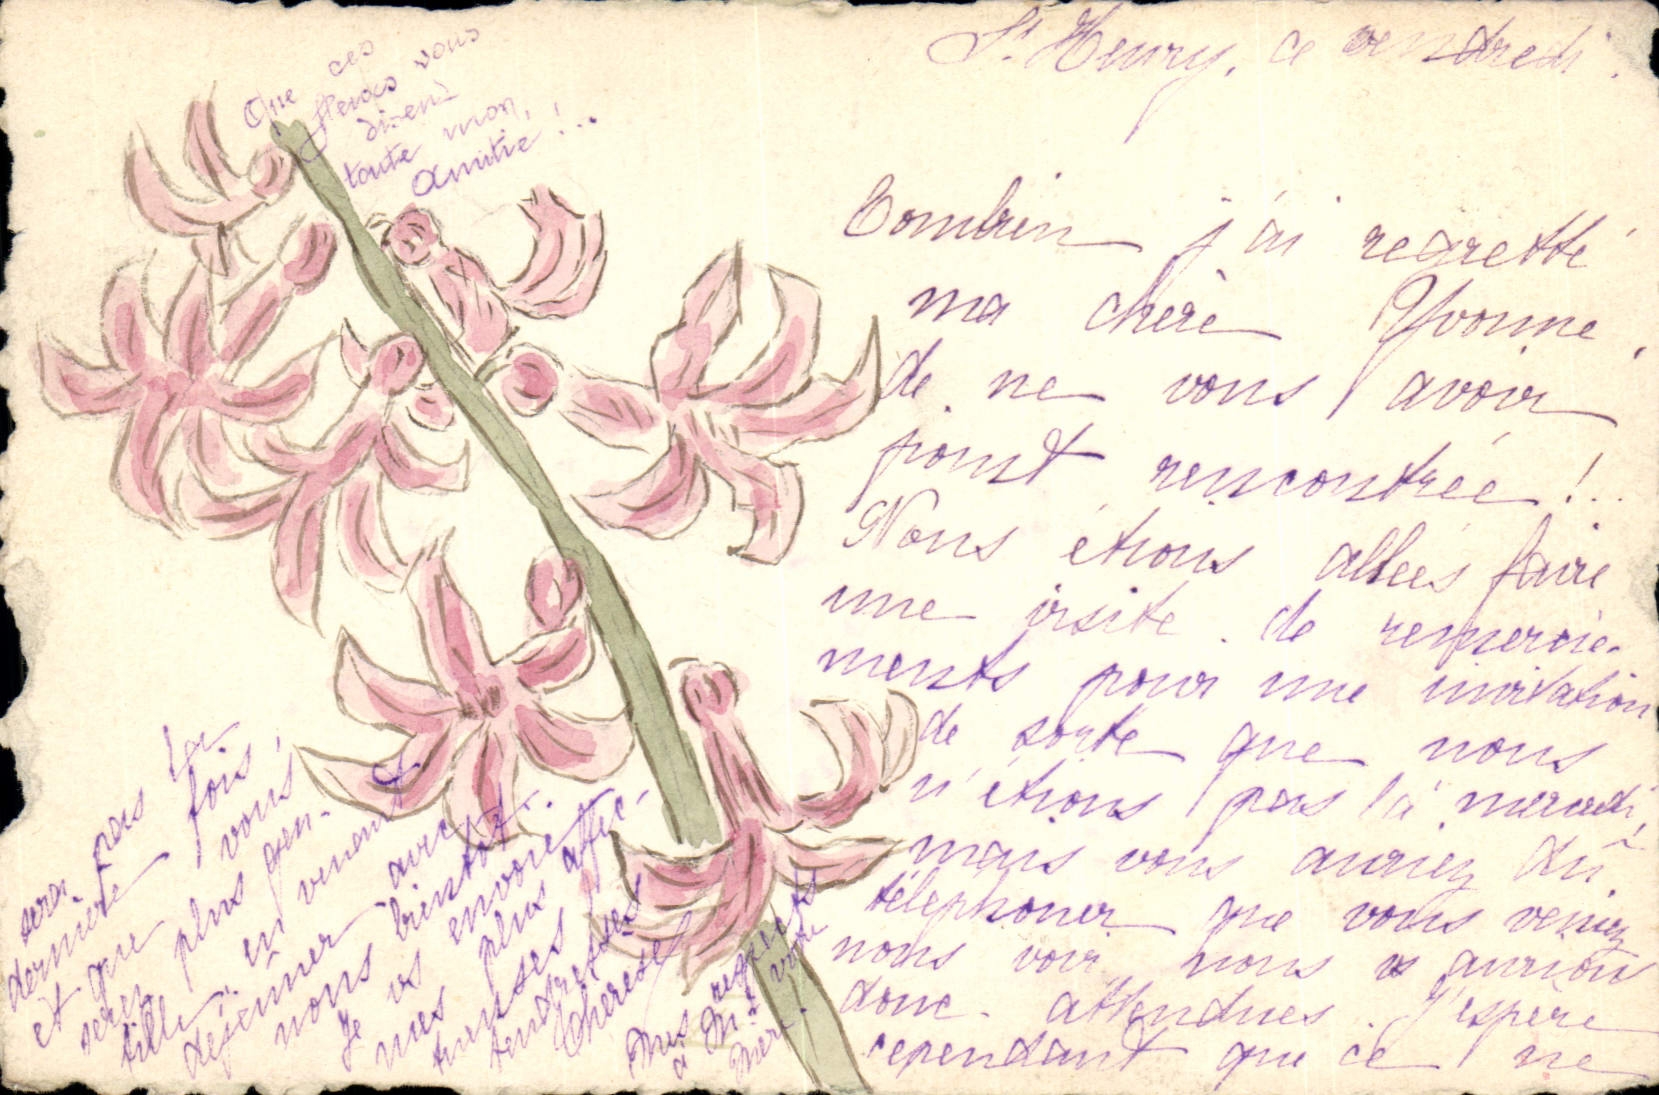 St Henry, ce vendredi.
Combien j'ai regretté
ma chère Yvonne,
de ne vous avoir
point rencontrée !..
Nous étions allées faire
une visite de remercie-
ments pour une invitation
de sorte que nous
n'étions pas là mercredi,
mais vous auriez dû
téléphoner que vous veniez
nous voir, nous vs aurions
donc attendues. J'espère
cependant que ce ne
sera pas la
dernière fois,
et que vous
serez plus gen-
tille.. en venant
déjeuner avec
nous bientôt..
Je vs envoie
mes plus affec-
tueuses
tendresses
Thérèse
Mes respects
à Me votre
Mère.
Que ces
fleurs vous
disent
toute mon
amitié !...